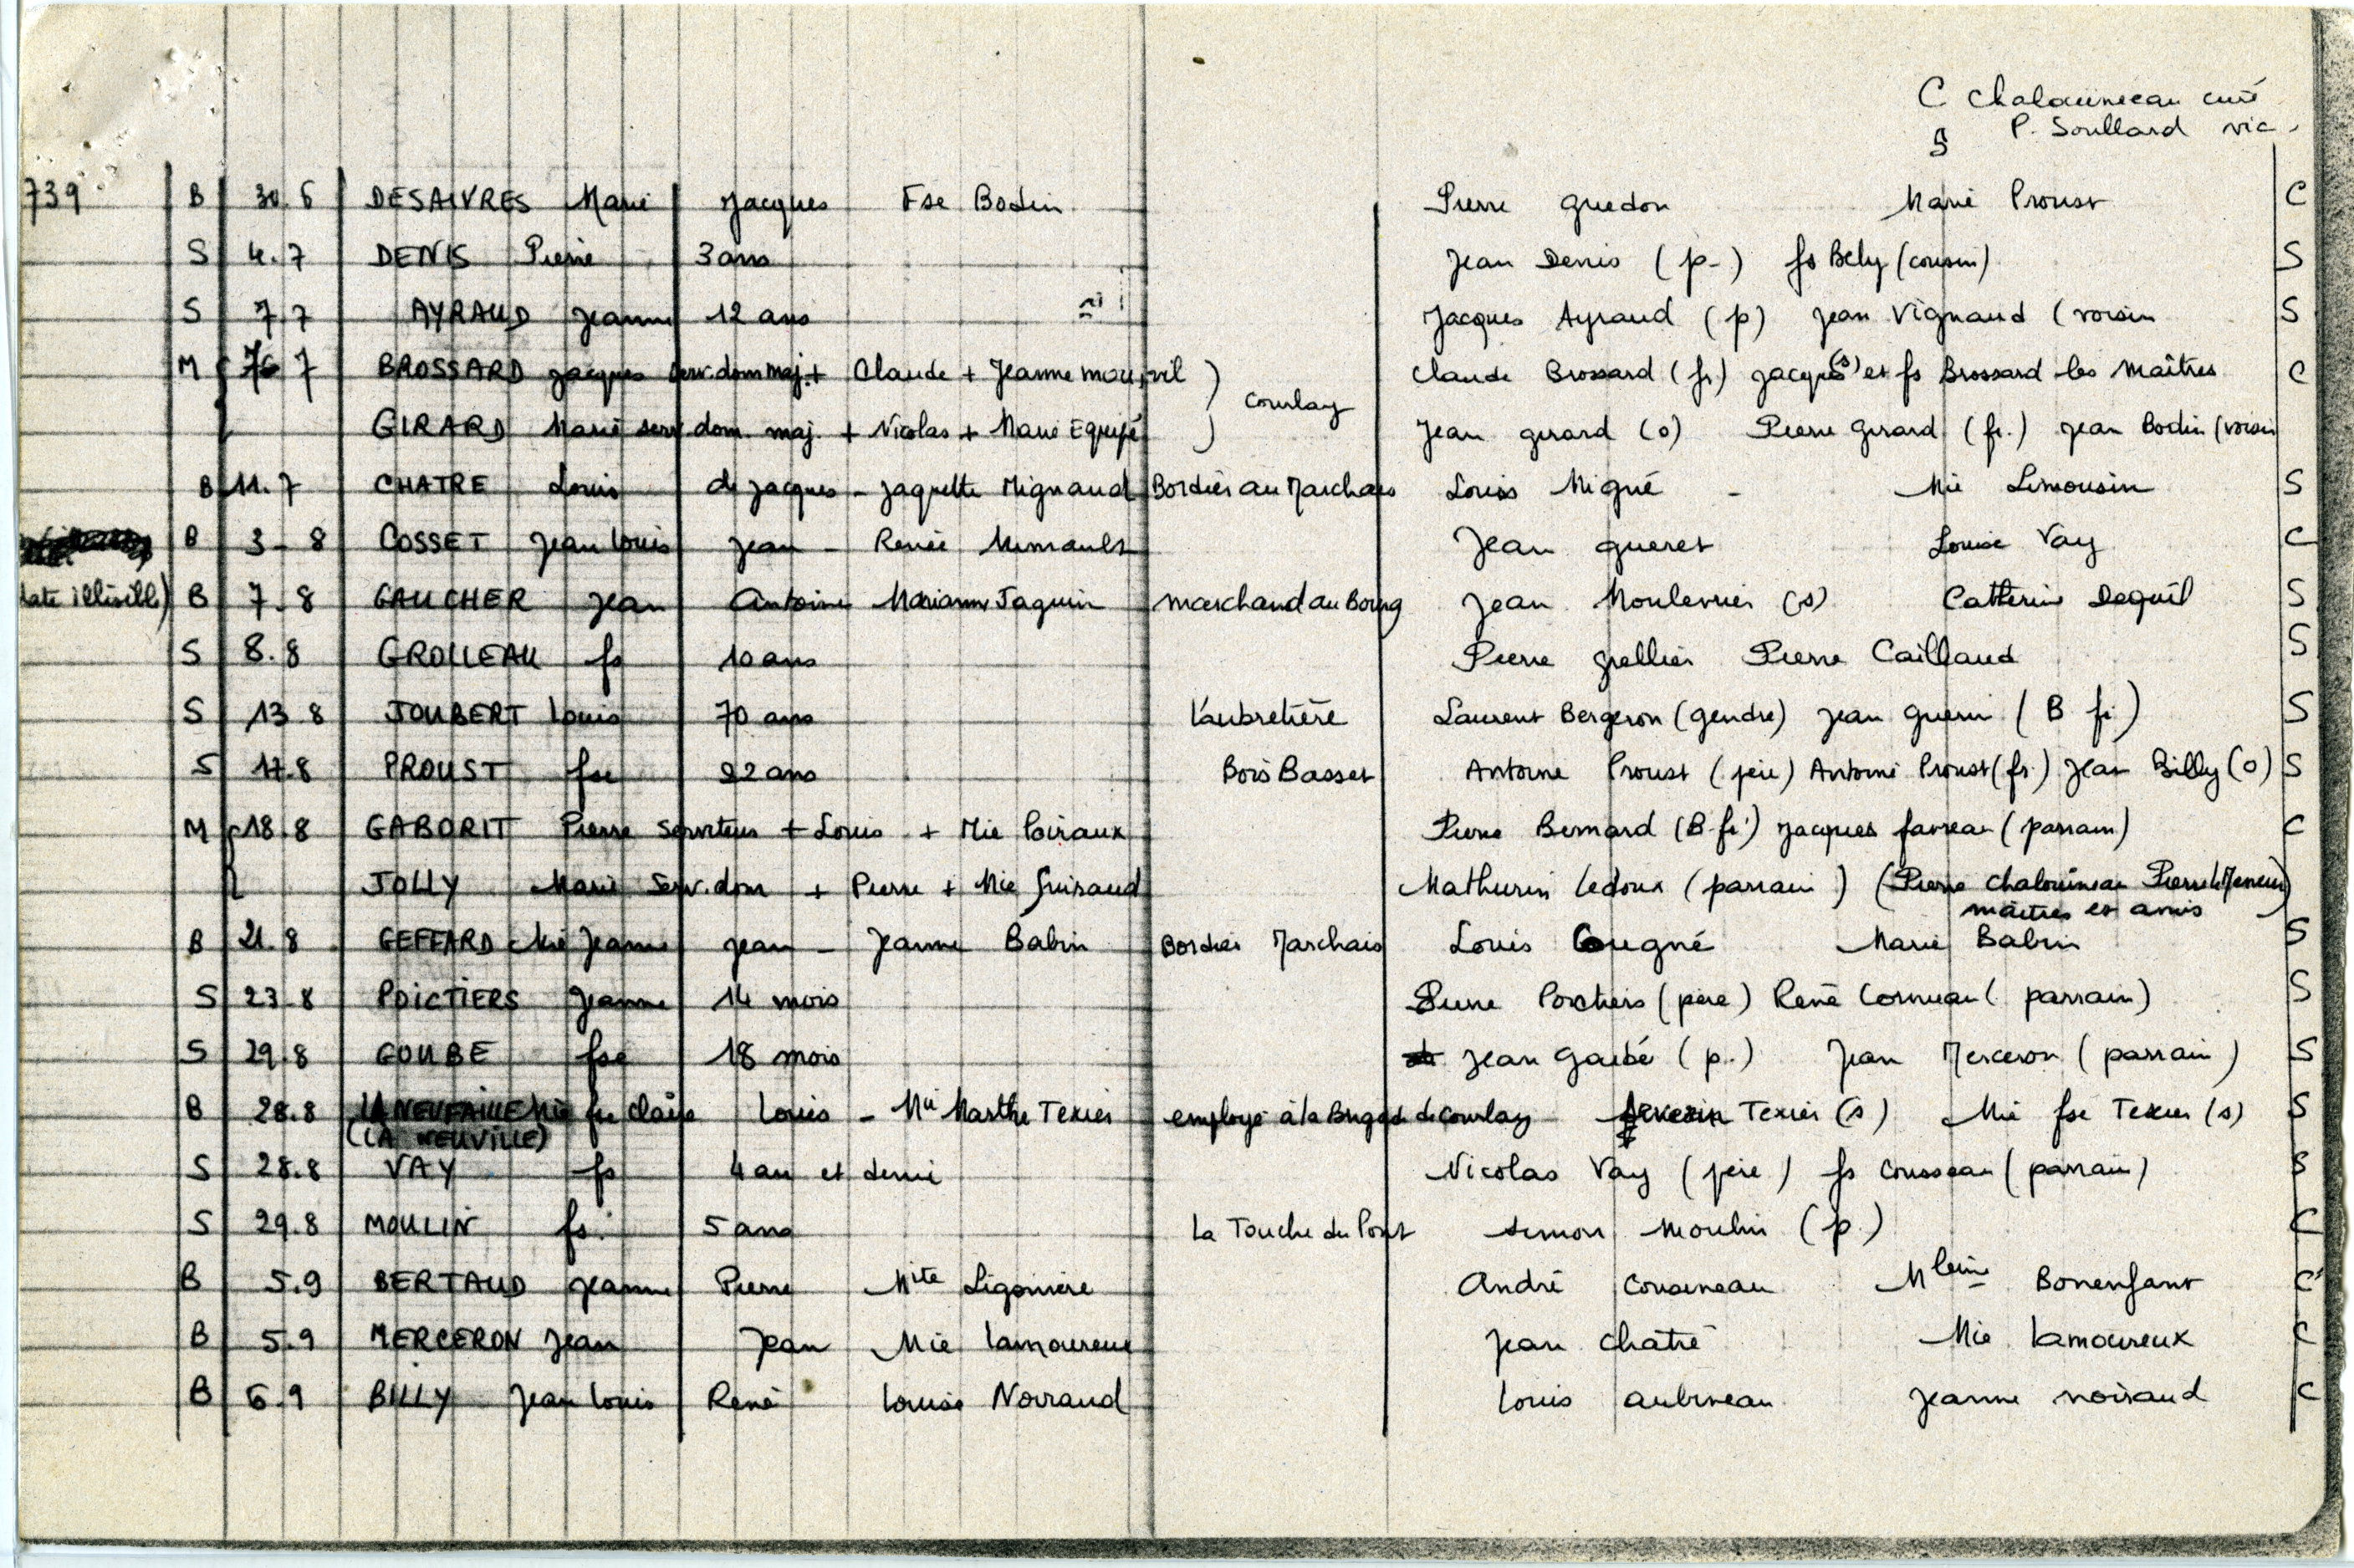 C Chalouineau curé
S P. Soullard vic.
739 B 30.6 DESAIVRES Marie Jacques Fse Bodin Pierre Guedon Marie Proust C
S 4.7 DENIS Pierre 3 ans Jean Denis (p.) fs Bely (cousin) S
S 7.7 AYRAUD Jeanne 12 ans Jacques Ayraud (p) Jean Vignaud (voisin S
M 7 BROSSARD Jacques serv. dom maj. + Claude + Jeanne Claude Brossard (fr) Jacques (s) et fs Brossard les Maîtres C
Courlay
GIRARD Marie serv dom. maj. + Nicolas + Marie Equipé Jean Girard (o) Pierre Girard (fr.) Jean Bodin (voisin
B 11.7 CHATRE Louis de Jacques - Jaquette Mignaud Bordier au Marchais Louis Migné - Mie Limousin S
B 3-8 COSSET Jean Louis Jean - Renée Mimault Jean Gueret Louise Vay C
date illisible) B 7-8 GAUCHER Jean Antoine Marianne Jaquin marchand au Bourg Jean Moulevrier (s) Catherine Deguil S
S 8.8 GROLLEAU fs 10 ans Pierre Grellier Pierre Caillaud S
S 13.8 JOUBERT Louis 70 ans L'aubretière Laurent Bergeron (gendre) Jean Guerin (B fr) S
S 17.8 PROUST fse 22 ans Bois Basset Antoine Proust (père) Antoine Proust (fr.) Jean Billy (o) S
M 18.8 GABORIT Pierre Serviteur + Louis + Mie Poiraux Pierre Bernard (B. fr) Jacques Favreau (parrain) C
JOLLY Marie Serv. dom + Pierre + Mie Guiraud Mathurin Ledoux (parrain) (Pierre Chalouineau Pierre
maîtres et amis
B 21.8 GEFFARD Mie Jeanne Jean - Jeanne Babin Bordier Marchais Louis Gougné Marie Babin S
S 23.8 POICTIERS Jeanne 14 mois Pierre Poictiers (père) René Cornuau (parrain) S
S 29.8 GOUBE fse 18 mois Jean Goubé (p.) Jean Merceron (parrain) S
B 28.8 Mie fse Claire Louis - Mie Marthe Texier employé à la Brigade de Courlay Texier (s) Mie fse Texier (s) S
(LA NEUVILLE)
S 28.8 VAY fs 4 an et demi Nicolas Vay (père) fs Cousseau (parrain) S
S 29.8 MOULIN fs. 5 ans La Touche du Pont Simon Moulin (p.) C
B 5.9 BERTAUD Jeanne Pierre Mite Ligonière André Cousineau Mleine Bonenfant C
B 5.9 MERCERON Jean Jean Mie Lamoureux Jean Chatré Mie Lamoureux C
B 6.9 BILLY Jean Louis René Louise Noiraud Louis Aubineau Jeanne Noiraud C